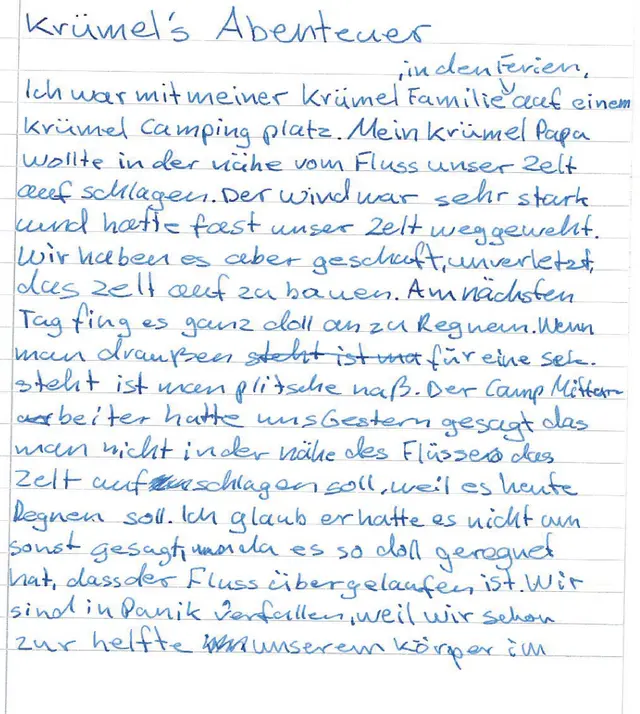 Krümel's Abenteuer
, in den Ferien,
Ich war mit meiner Krümel Familie auf einem
Krümel Camping platz. Mein Krümel Papa
wollte in der nähe vom Fluss unser Zelt
auf schlagen. Der wind war sehr stark
und hatte fast unser Zelt weggeweht.
Wir haben es aber geschaft, unverletzt,
das zelt auf zu bauen. Am nächsten
Tag fing es ganz doll an zu Regnen. Wenn
man draußen steht ist ma für eine sek.
steht ist man plitsche naß. Der Camp Mitar-
beiter hatte uns Gestern gesagt das
man nicht in der nähe des Flusses das
Zelt aufschlagen soll, weil es heute
Regnen soll. Ich glaub er hatte es nicht um
sonst gesagt, da es so doll geregnet
hat, dass der Fluss übergelaufen ist. Wir
sind in Panik verfallen, weil wir schon
zur helfte unserem körper im